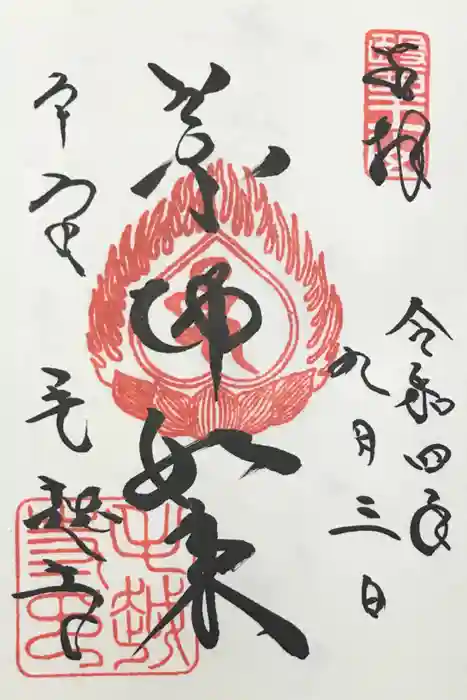 奉拝
令和四年
九月三日
薬師如来
平泉
毛越寺
毛越寺印